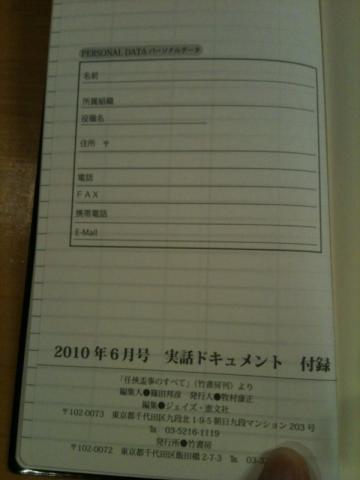 PERSONAL DATA パーソナルデータ
名前
所属組織
役職名
住所 〒
電話
FAX
携帯電話
E-Mail
2010年6月号 実話ドキュメント 付録
「任侠盃事のすべて」（竹書房刊）より
編集人●篠田邦彦 発行人●牧村康正
編集●ジェイズ・恵文社
〒102-0073 東京都千代田区九段北1-9-5朝日九段マンション203号
℡ 03-5216-1119
発行所●竹書房
〒102-0072 東京都千代田区飯田橋2-7-3 ℡ 03-3